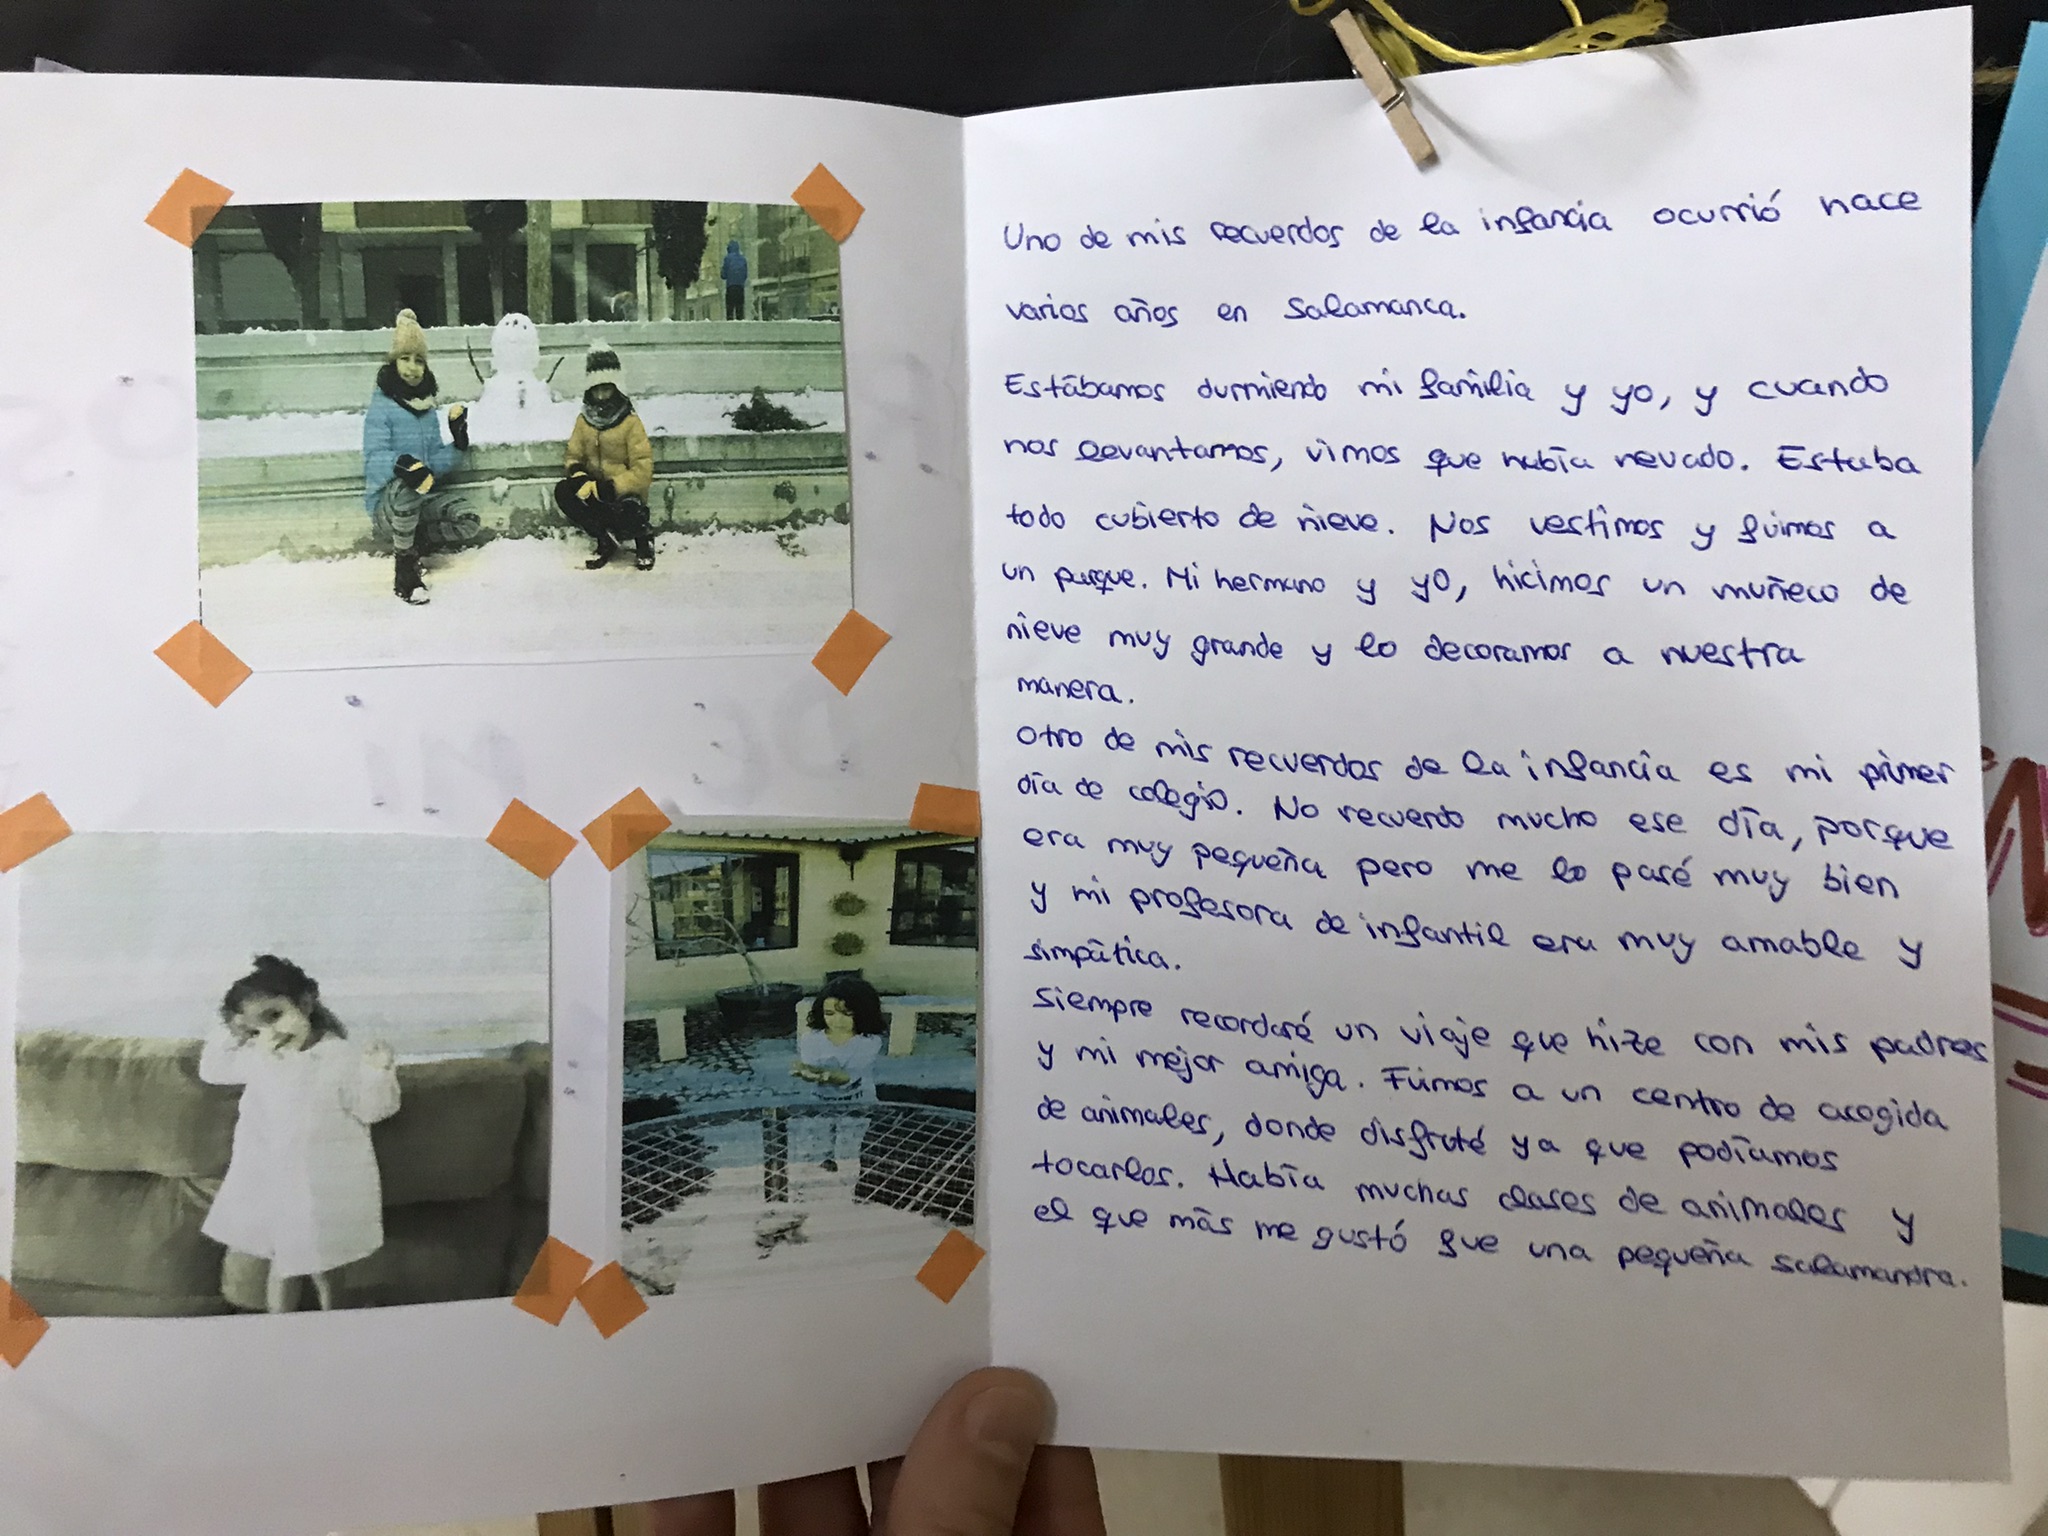 Uno de mis recuerdos de la infancia ocurrió hace
varios años en Salamanca.
Estábamos durmiendo mi familia y yo, y cuando
nos levantamos, vimos que había nevado. Estaba
todo cubierto de nieve. Nos vestimos y fuimos a
un parque. Mi hermano y yo, hicimos un muñeco de
nieve muy grande y lo decoramos a nuestra
manera.
Otro de mis recuerdos de la infancia es mi primer
día de colegio. No recuerdo mucho ese día, porque
era muy pequeña pero me lo pasé muy bien
y mi profesora de infantil era muy amable y
simpática.
Siempre recordaré un viaje que hize con mis padres
y mi mejor amiga. Fuimos a un centro de acogida
de animales, donde disfruté ya que podíamos
tocarlos. Había muchas clases de animales y
el que más me gustó fue una pequeña salamandra.